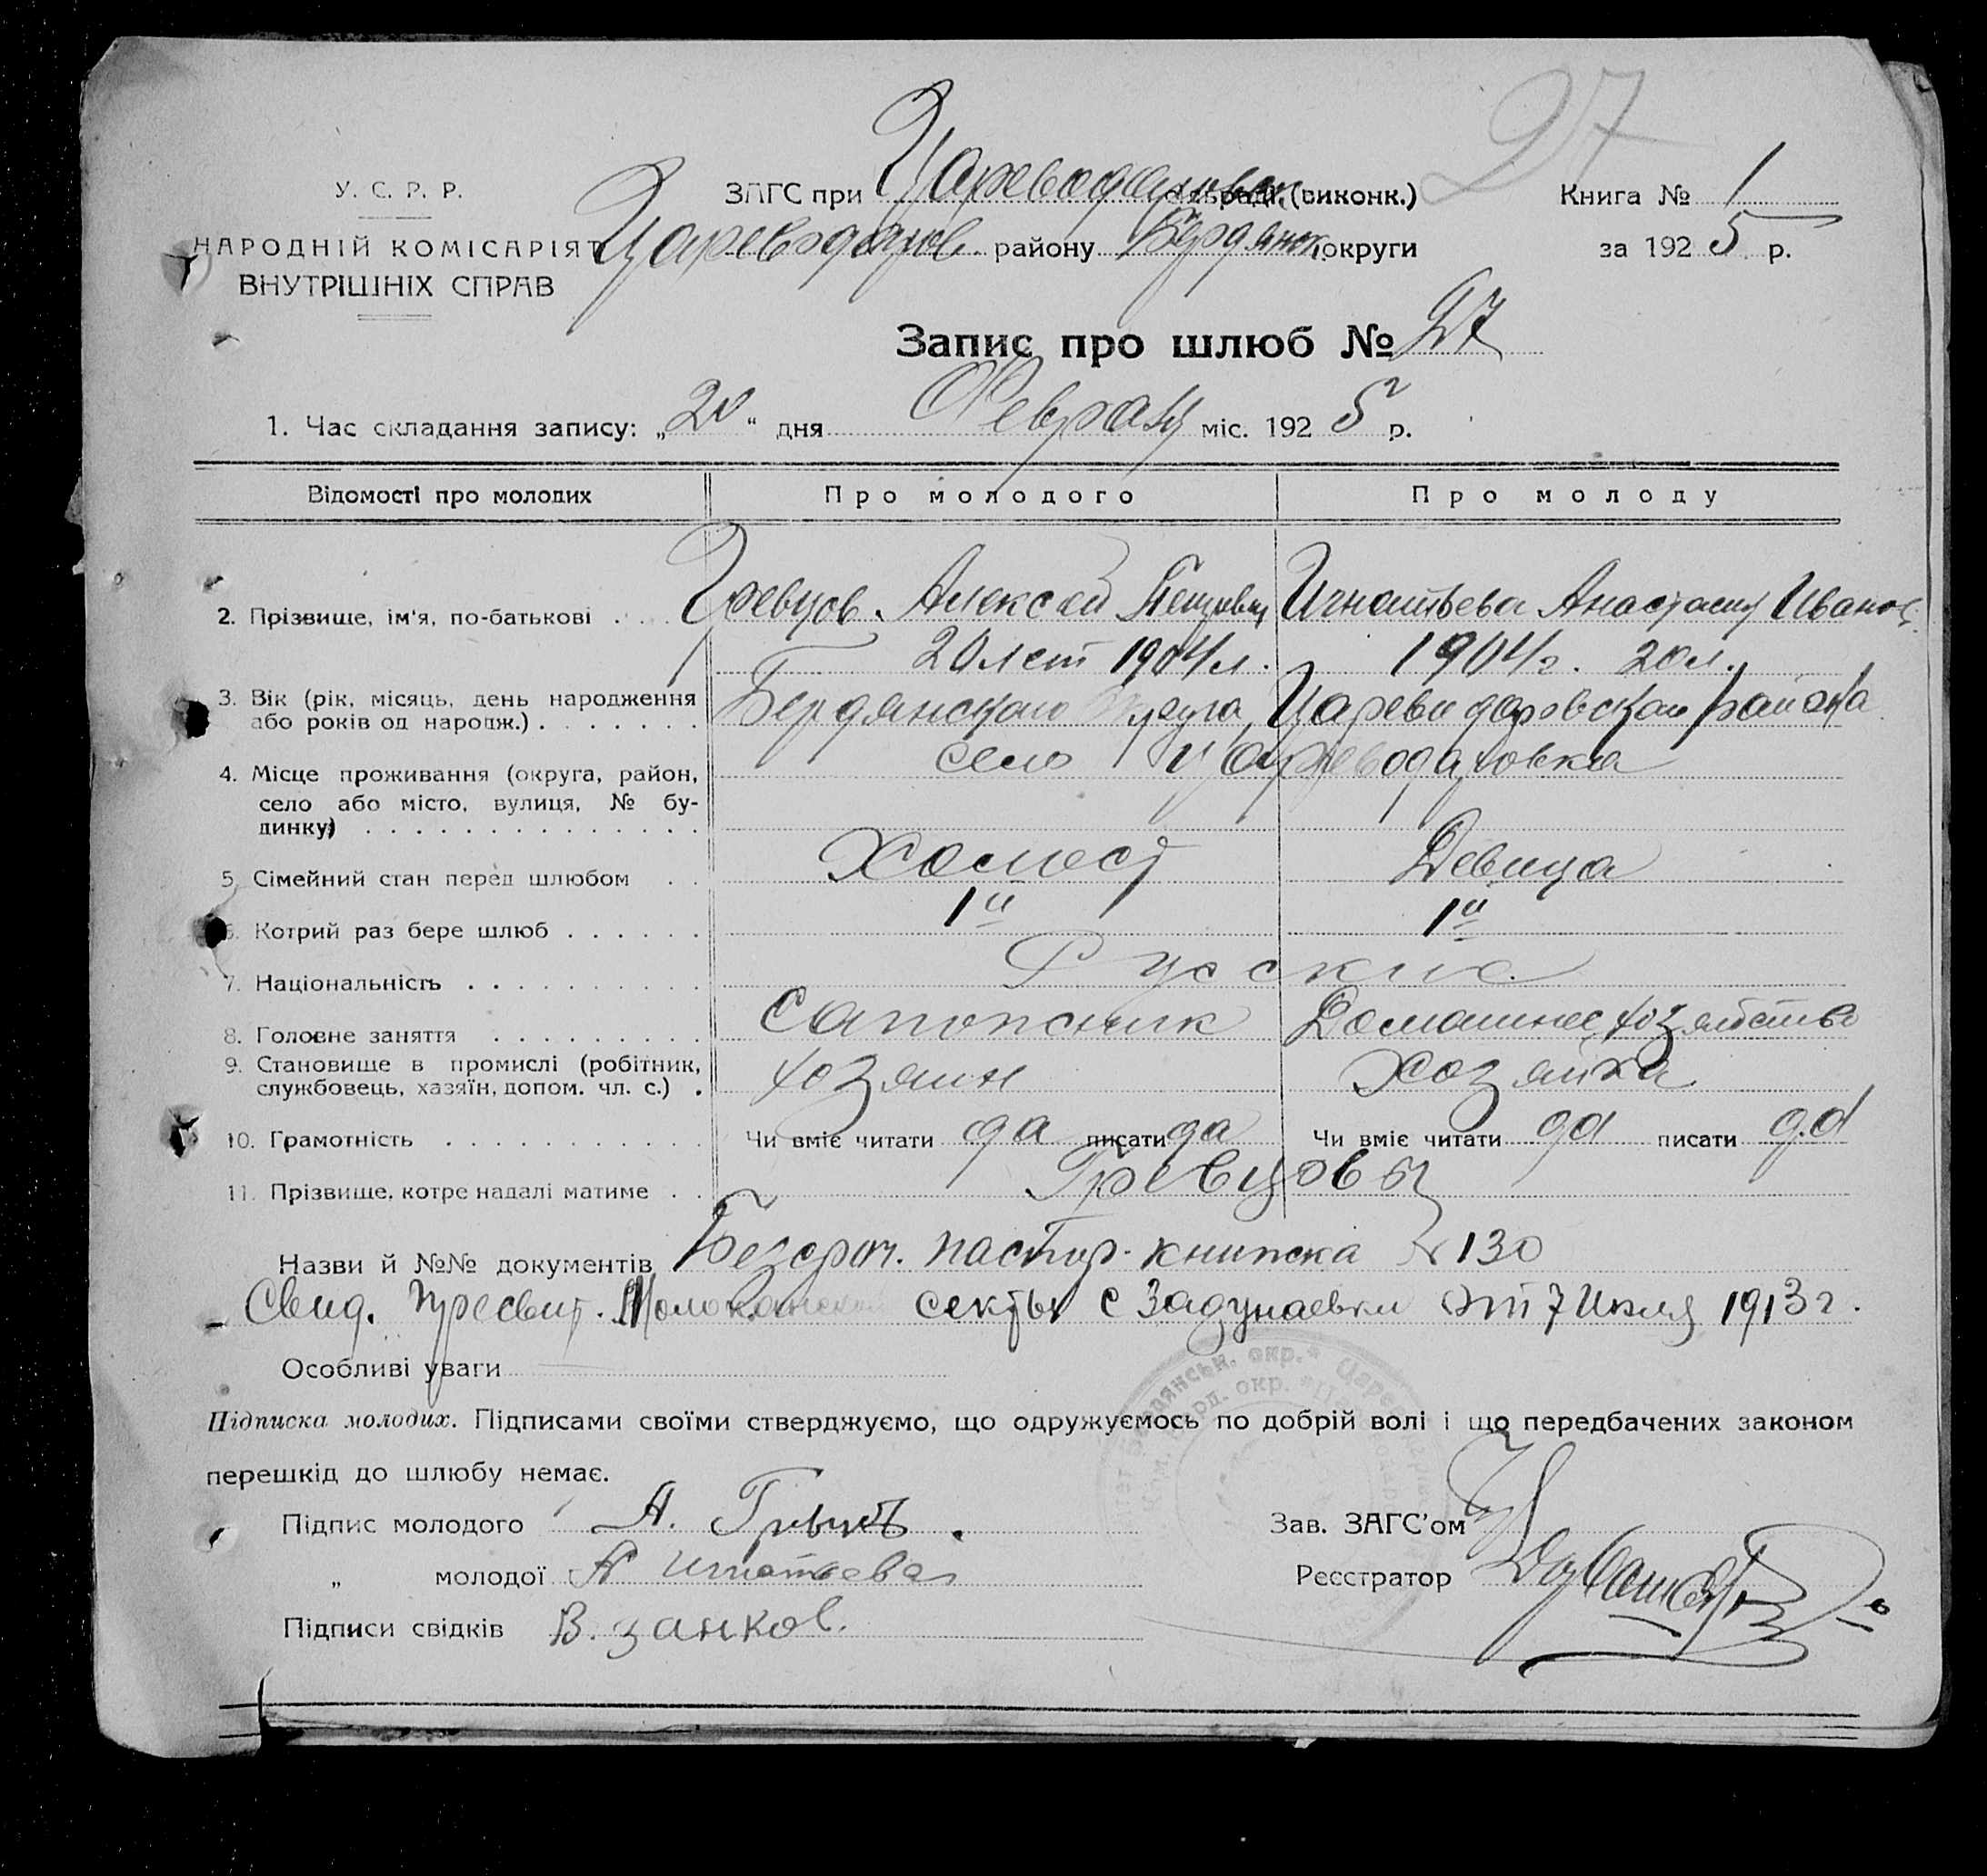 27
У. С. Р. Р.
НАРОДНІЙ КОМІСАРІЯТ
ВНУТРІШНІХ СПРАВ
ЗАГС при Цареводаровск сільраді, (виконк.)
Цареводаров. району Бердянск. округи
Книга № 1
за 1925 р.
Запис про шлюб № 27
1. Час складання запису: „20“ дня Февраля міс. 1925 р.
Відомості про молодих Про молодого Про молоду
2. Прізвище, ім'я, по-батькові Гревцов. Алексей Петрович Игнатьева Анастасия Иванов.
20 лет 1904 г. 1904 г. 20 л.
3. Вік (рік, місяць, день народження
або років од народж.)
Бердянского Округа, Цареводаровскаго района
село Цареводаровка
4. Місце проживання (округа, район,
село або місто, вулиця, № бу-
динку)
5. Сімейний стан перед шлюбом Холост Девица
6. Котрий раз бере шлюб 1й 1й
7. Національність Русские
8. Головне заняття Сапожник Домашнее хозяйство
9. Становище в промислі (робітник,
службовець, хазяїн, допом. чл. с.) хозяин Хозяйка
10. Грамотність Чи вміє читати да писати да Чи вміє читати да писати да
11. Прізвище, котре надалі матиме Гревцовы
Назви й №№ документів Безсроч. паспор. книжка № 130
Свид. Пресвит. Молоканской секты с Задунаевки от 7 Июля 1913 г.
Особливі уваги
Підписка молодих. Підписами своїми стверджуємо, що одружуємось по добрій волі і що передбачених законом
перешкід до шлюбу немає.
Підпис молодого А.
Зав. ЗАГС'ом
„ молодої А Игнатьева
Реєстратор
Підписи свідків В. Занков.